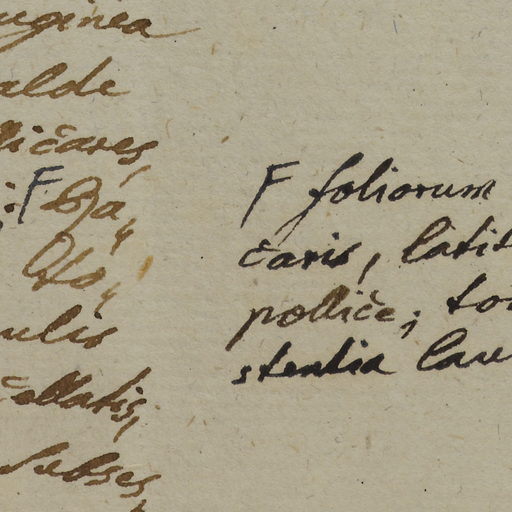 uginea
alde
ličares
: F
lto,
ulis
cellatis,
subses,
F foliorum
čaris, latit
polliče; to
stentia lau